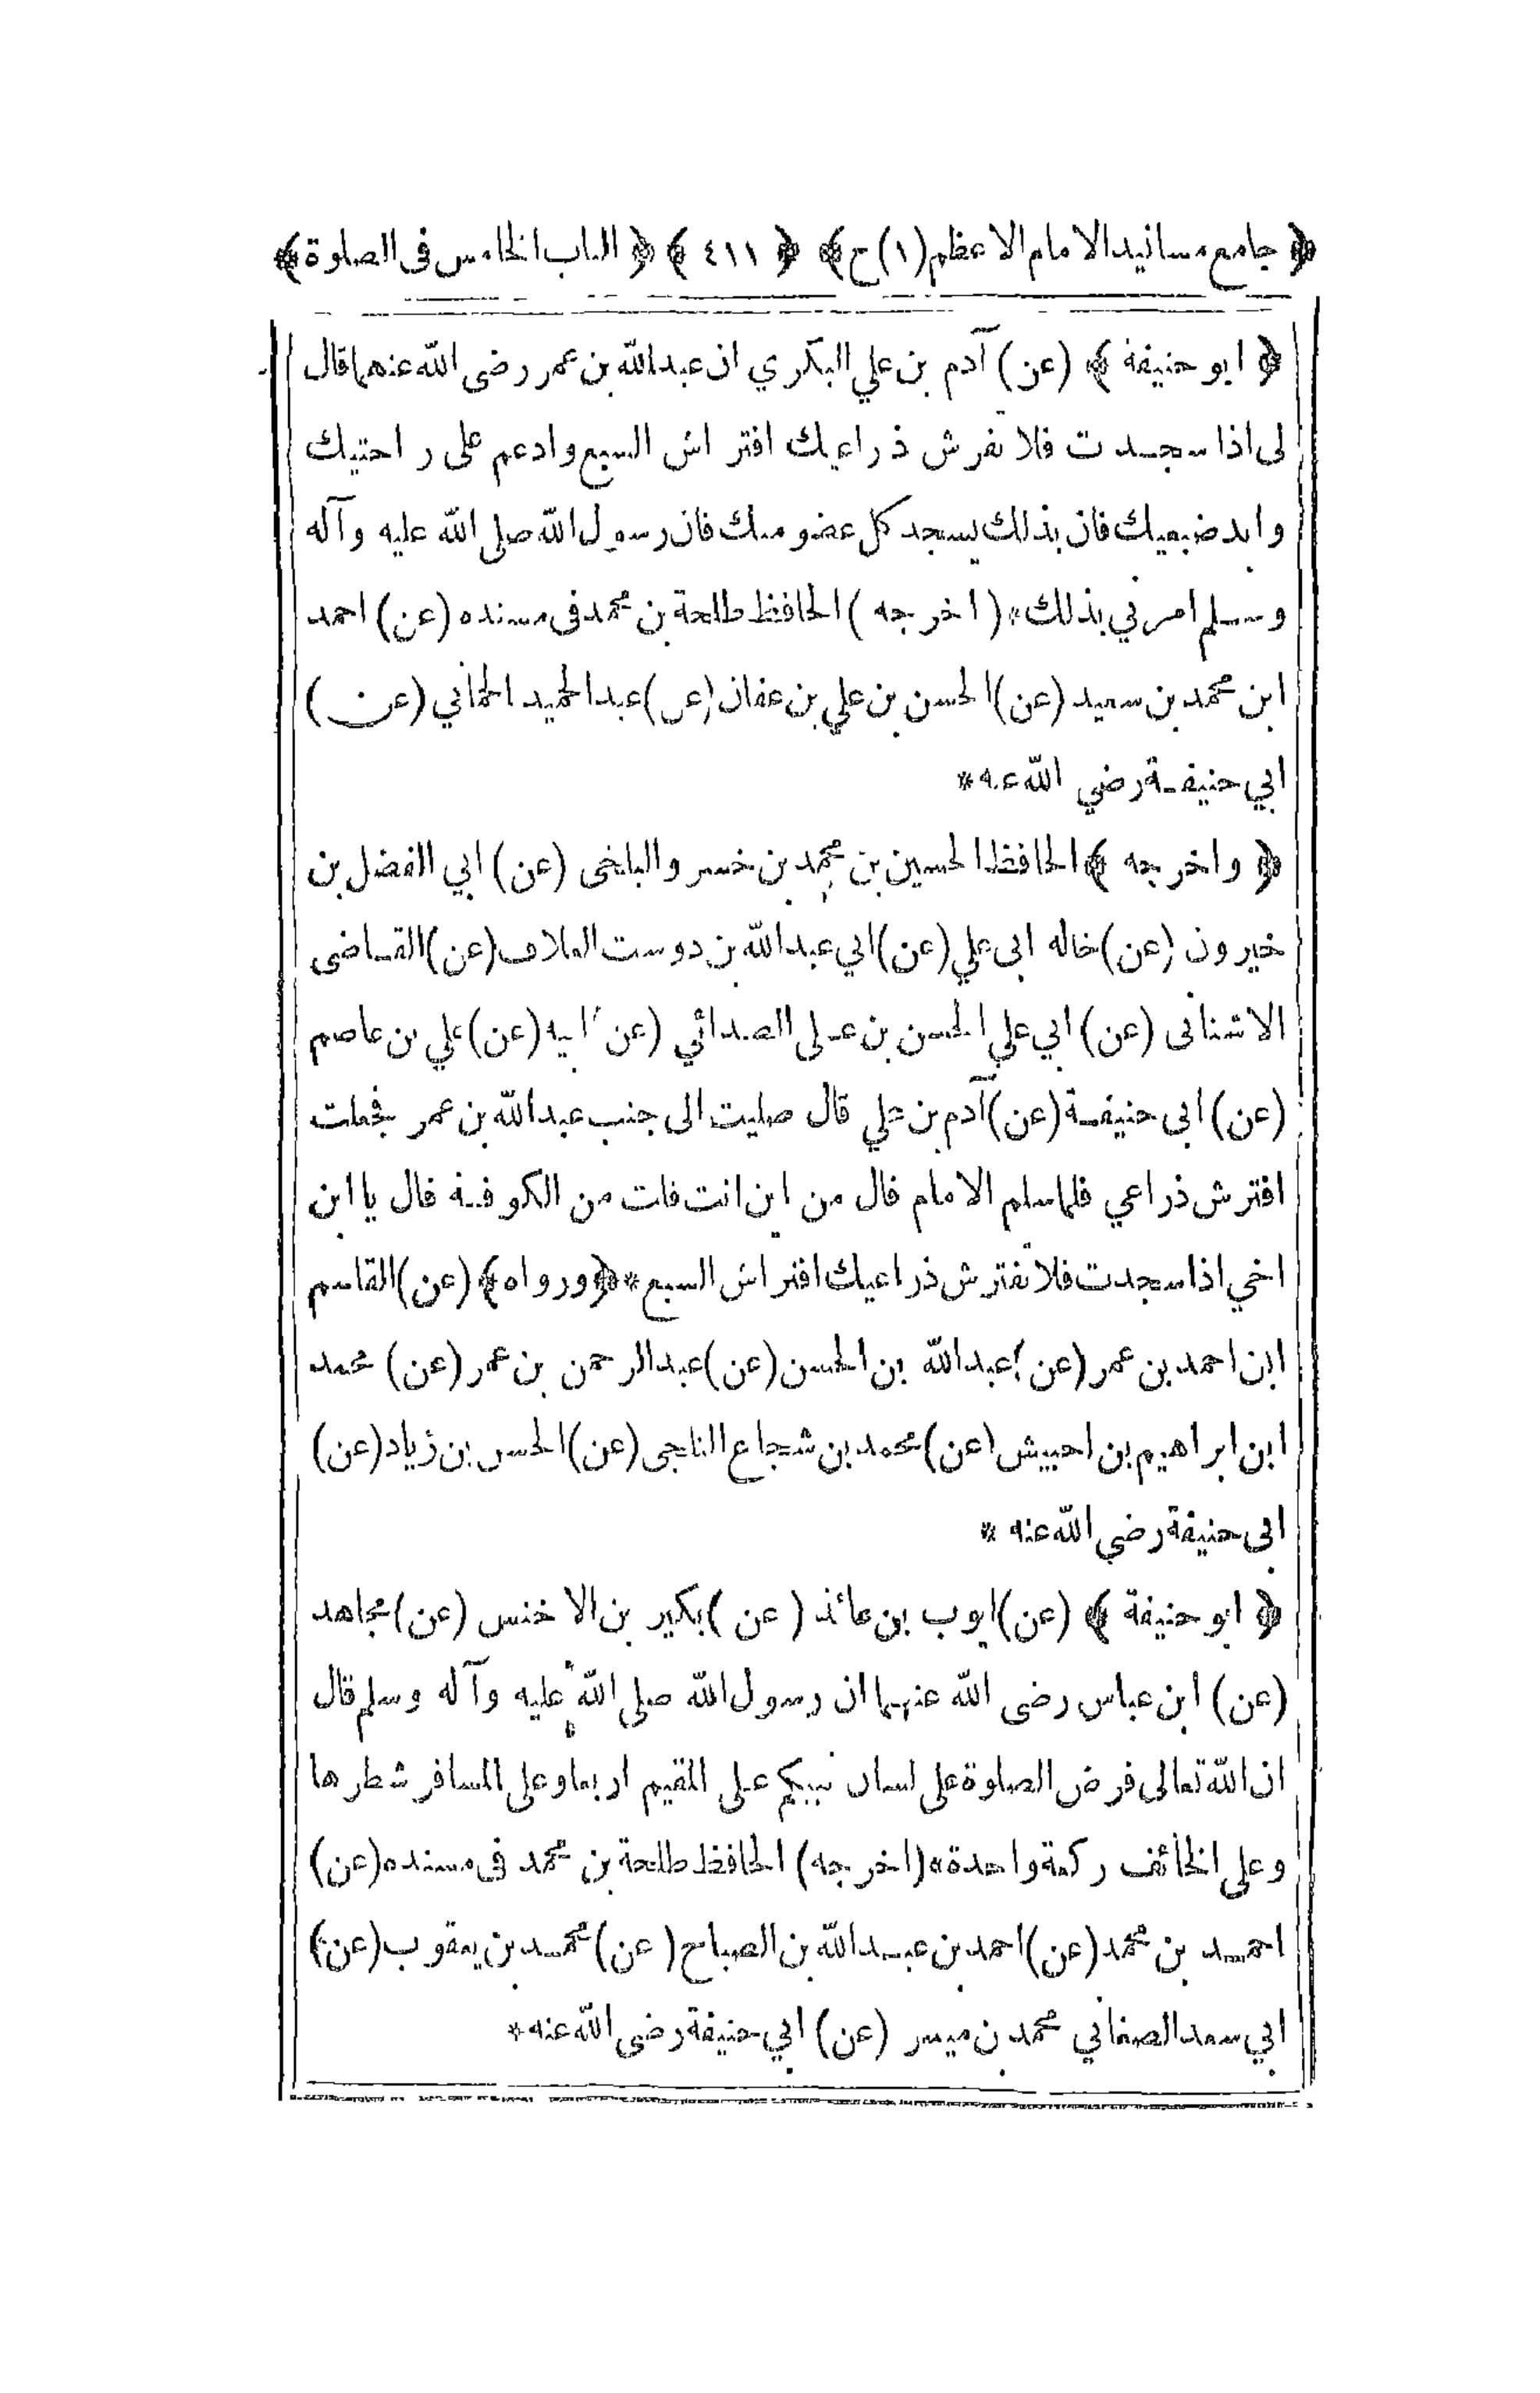 ﴿ جامع مسانيد الامام الاعظم (١) ج ﴾ ﴿ ٤١١ ﴾ ﴿ الباب الخامس فى الصلوة ﴾
﴿ ابو حنيفة ﴾ (عن) آدم بن علي البكري ان عبدالله بن عمر رضى الله عنهما قال
لى اذا سجدت فلا تفرش ذراعيك افتراش السبع وادعم على راحتيك
وابد ضبعيك فان بذلك يسجد كل عضو منك فان رسول الله صلى الله عليه وآله
وسلم امرني بذلك * (اخرجه) الحافظ طلحة بن محمد فى مسنده (عن) احمد
ابن محمد بن سعيد (عن) الحسن بن علي بن عفان (عن) عبدالحميد الحماني (عن)
ابي حنيفة رضي الله عنه *
﴿ واخرجه ﴾ الحافظ الحسين بن محمد بن خسرو البلخى (عن) ابي الفضل بن
خيرون (عن) خاله ابى علي (عن) ابي عبدالله بن دوست العلاف (عن) القاضى
الاشنانى (عن) ابي علي الحسن بن على الصدائي (عن) ابيه (عن) علي بن عاصم
(عن) ابى حنيفة (عن) آدم بن علي قال صليت الى جنب عبدالله بن عمر فجعلت
افترش ذراعي فلما سلم الامام قال من اين انت قلت من الكوفة قال يا ابن
اخي اذا سجدت فلا تفترش ذراعيك افتراش السبع * ﴿ ورواه ﴾ (عن) القاسم
ابن احمد بن عمر (عن) عبدالله بن الحسن (عن) عبدالرحمن بن عمر (عن) محمد
ابن ابراهيم بن احبيش (عن) محمد بن شجاع الثلجى (عن) الحسن بن زياد (عن)
ابى حنيفة رضي الله عنه *
﴿ ابو حنيفة ﴾ (عن) ايوب بن عائذ (عن) بكير بن الاخنس (عن) مجاهد
(عن) ابن عباس رضى الله عنهما ان رسول الله صلى الله عليه وآله وسلم قال
ان الله تعالى فرض الصلوة على لسان نبيكم على المقيم اربعا وعلى المسافر شطرها
وعلى الخائف ركعة واحدة * (اخرجه) الحافظ طلحة بن محمد فى مسنده (عن)
احمد بن محمد (عن) احمد بن عبدالله بن الصباح (عن) محمد بن يعقوب (عن)
ابي سعد الصغاني محمد بن ميسر (عن) ابي حنيفة رضى الله عنه *